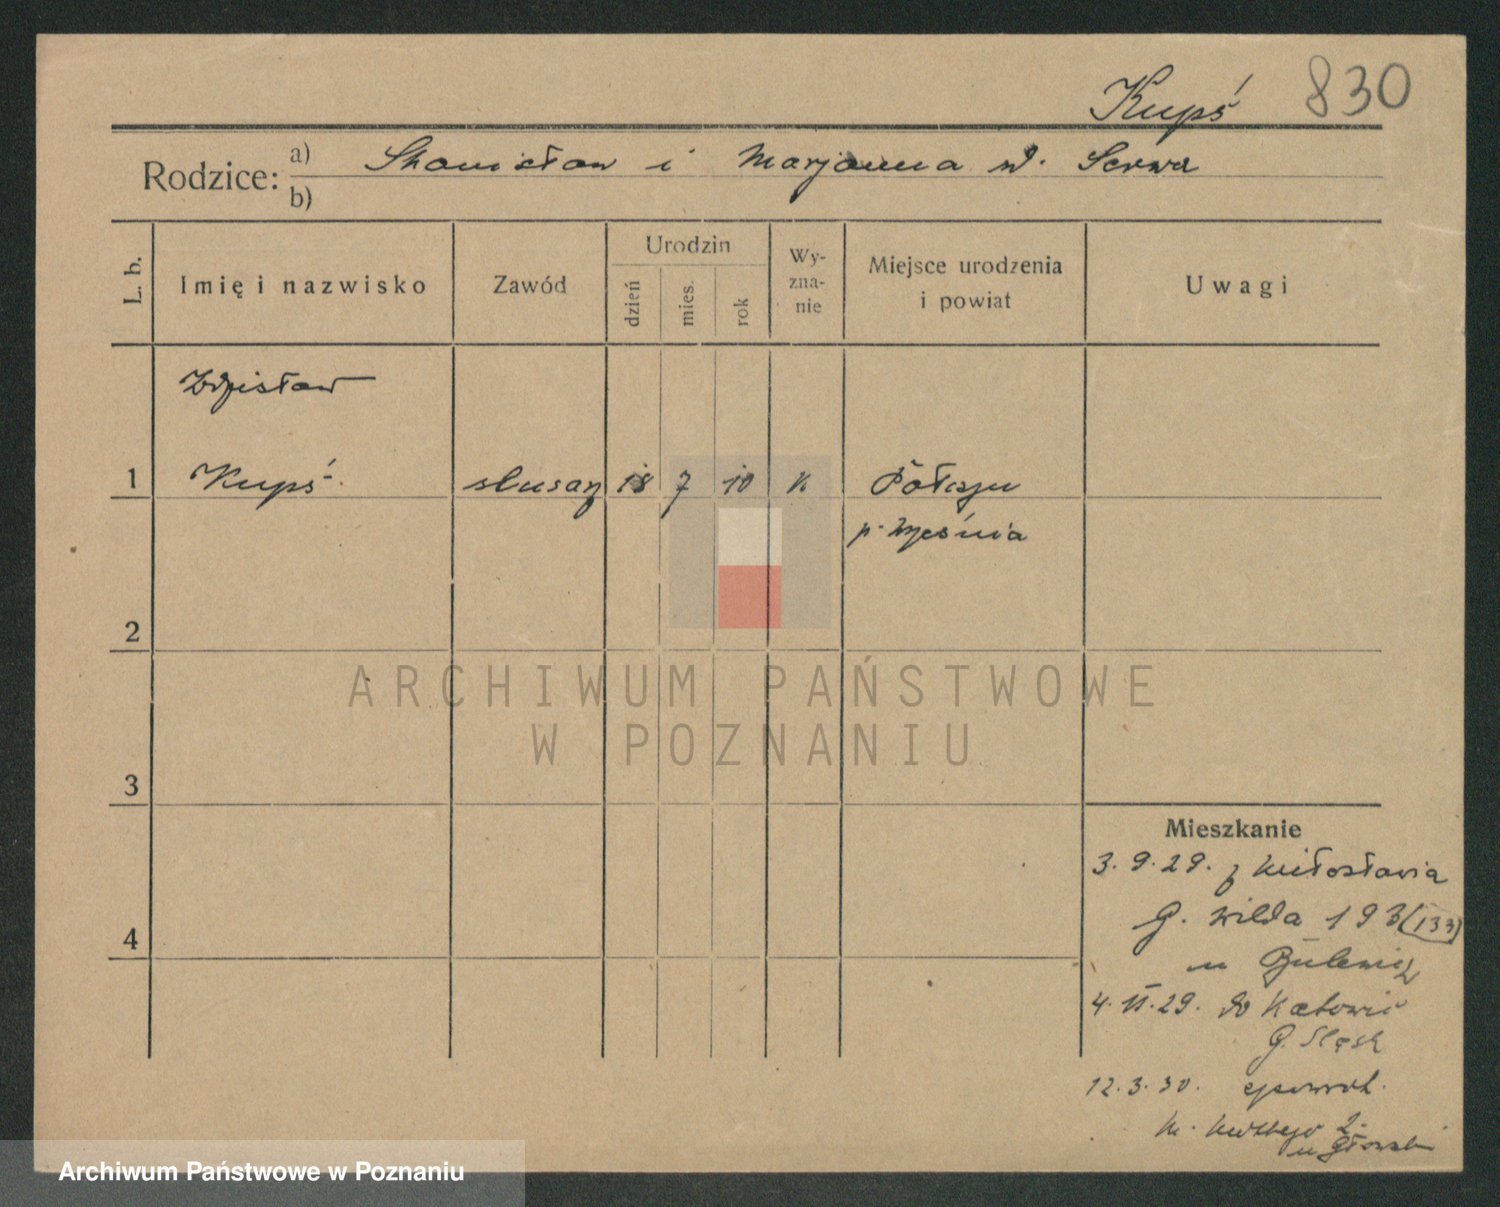 Kupś 830
Rodzice: a) Stanisław i Marjanna d. Serwa
b)
L. b. Imię i nazwisko Zawód Urodzin dzień mies. rok Wyznanie Miejsce urodzenia i powiat Uwagi
Zdzisław
1 Kupś ślusarz 18 7 10 k
p. Września
2
ARCHIWUM PAŃSTWOWE
W POZNANIU
3
Mieszkanie
3.9.29. z Miłosławia
4 G. Wilda 193 (133)
u
4.11.29. do Katowic
G. Śląsk
12.3.30.
Archiwum Państwowe w Poznaniu